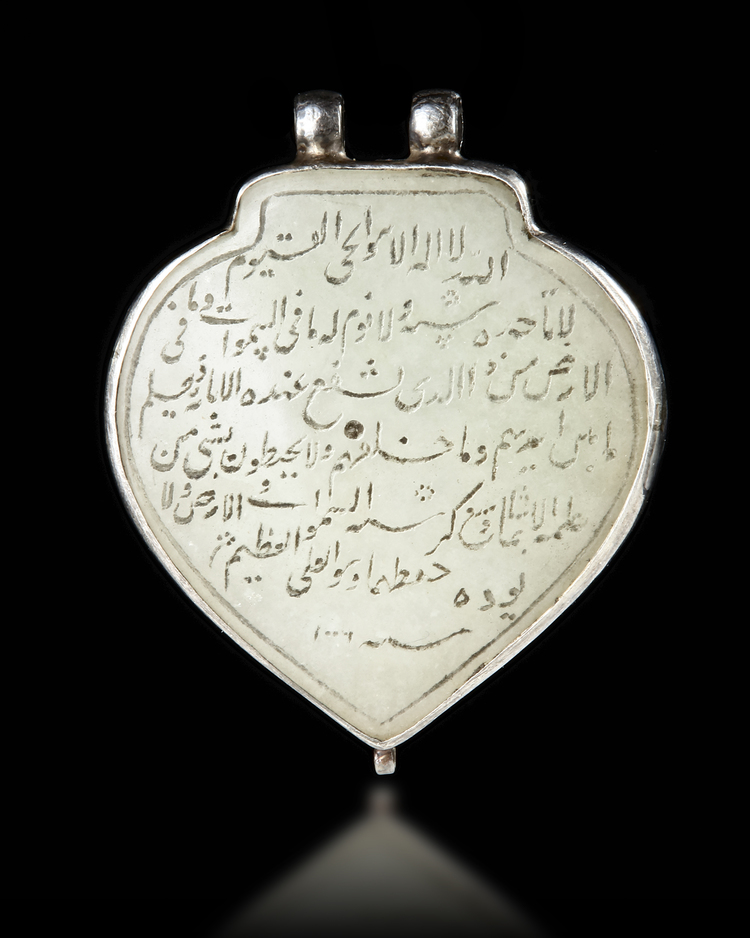 الله لا اله الا هو الحى القيوم
لا تاخذه سنة ولا نوم له ما فى السموات وما فى
الارض من ذا الذى يشفع عنده الا باذنه يعلم
ما بين ايديهم وما خلفهم ولا يحيطون بشى من
علمه الا بما شا وسع كرسيه السموات و الارض ولا
يوده حفظهما وهو العلى العظيم
سنه ١٠٠٦